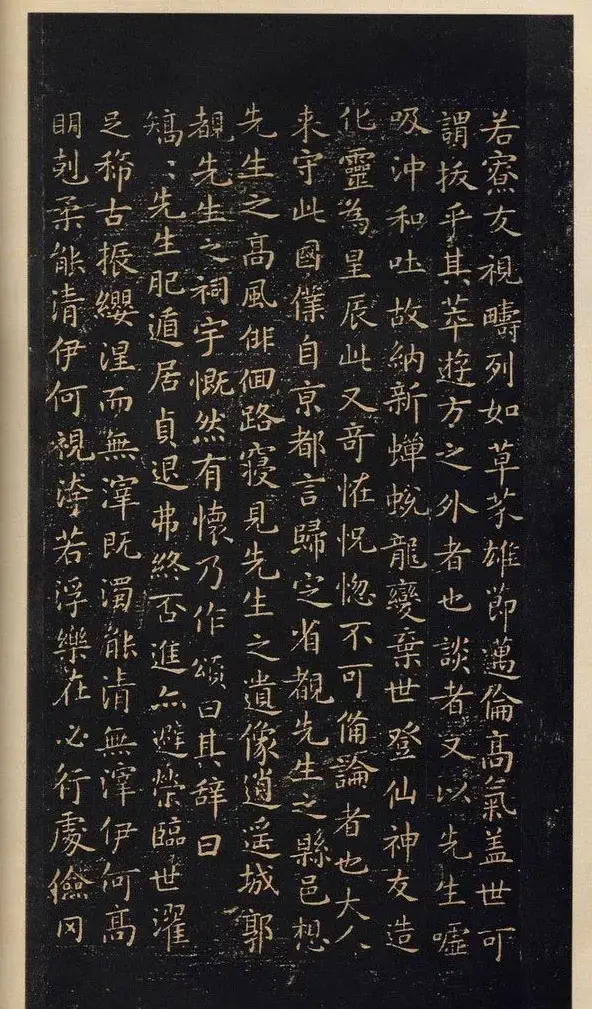 若寮友視疇列如草芥雄節邁倫高氣蓋世可
謂拔乎其萃遊方之外者也談者又以先生噓
吸沖和吐故納新蟬蛻龍變棄世登仙神友造
化靈為星辰此又奇恠怳惚不可備論者也大人
来守此國僕自京都言歸定省覩先生之縣邑想
先生之高風俳佪路寢見先生之遺像逍遥城郭
覩先生之祠宇慨然有懷乃作頌曰其辞曰
矯〻先生肥遁居貞退弗終否進亦避榮臨世濯
足稀古振纓涅而無滓既濁能清無滓伊何高
明剋柔能清伊何視洿若浮樂在必行處儉冈